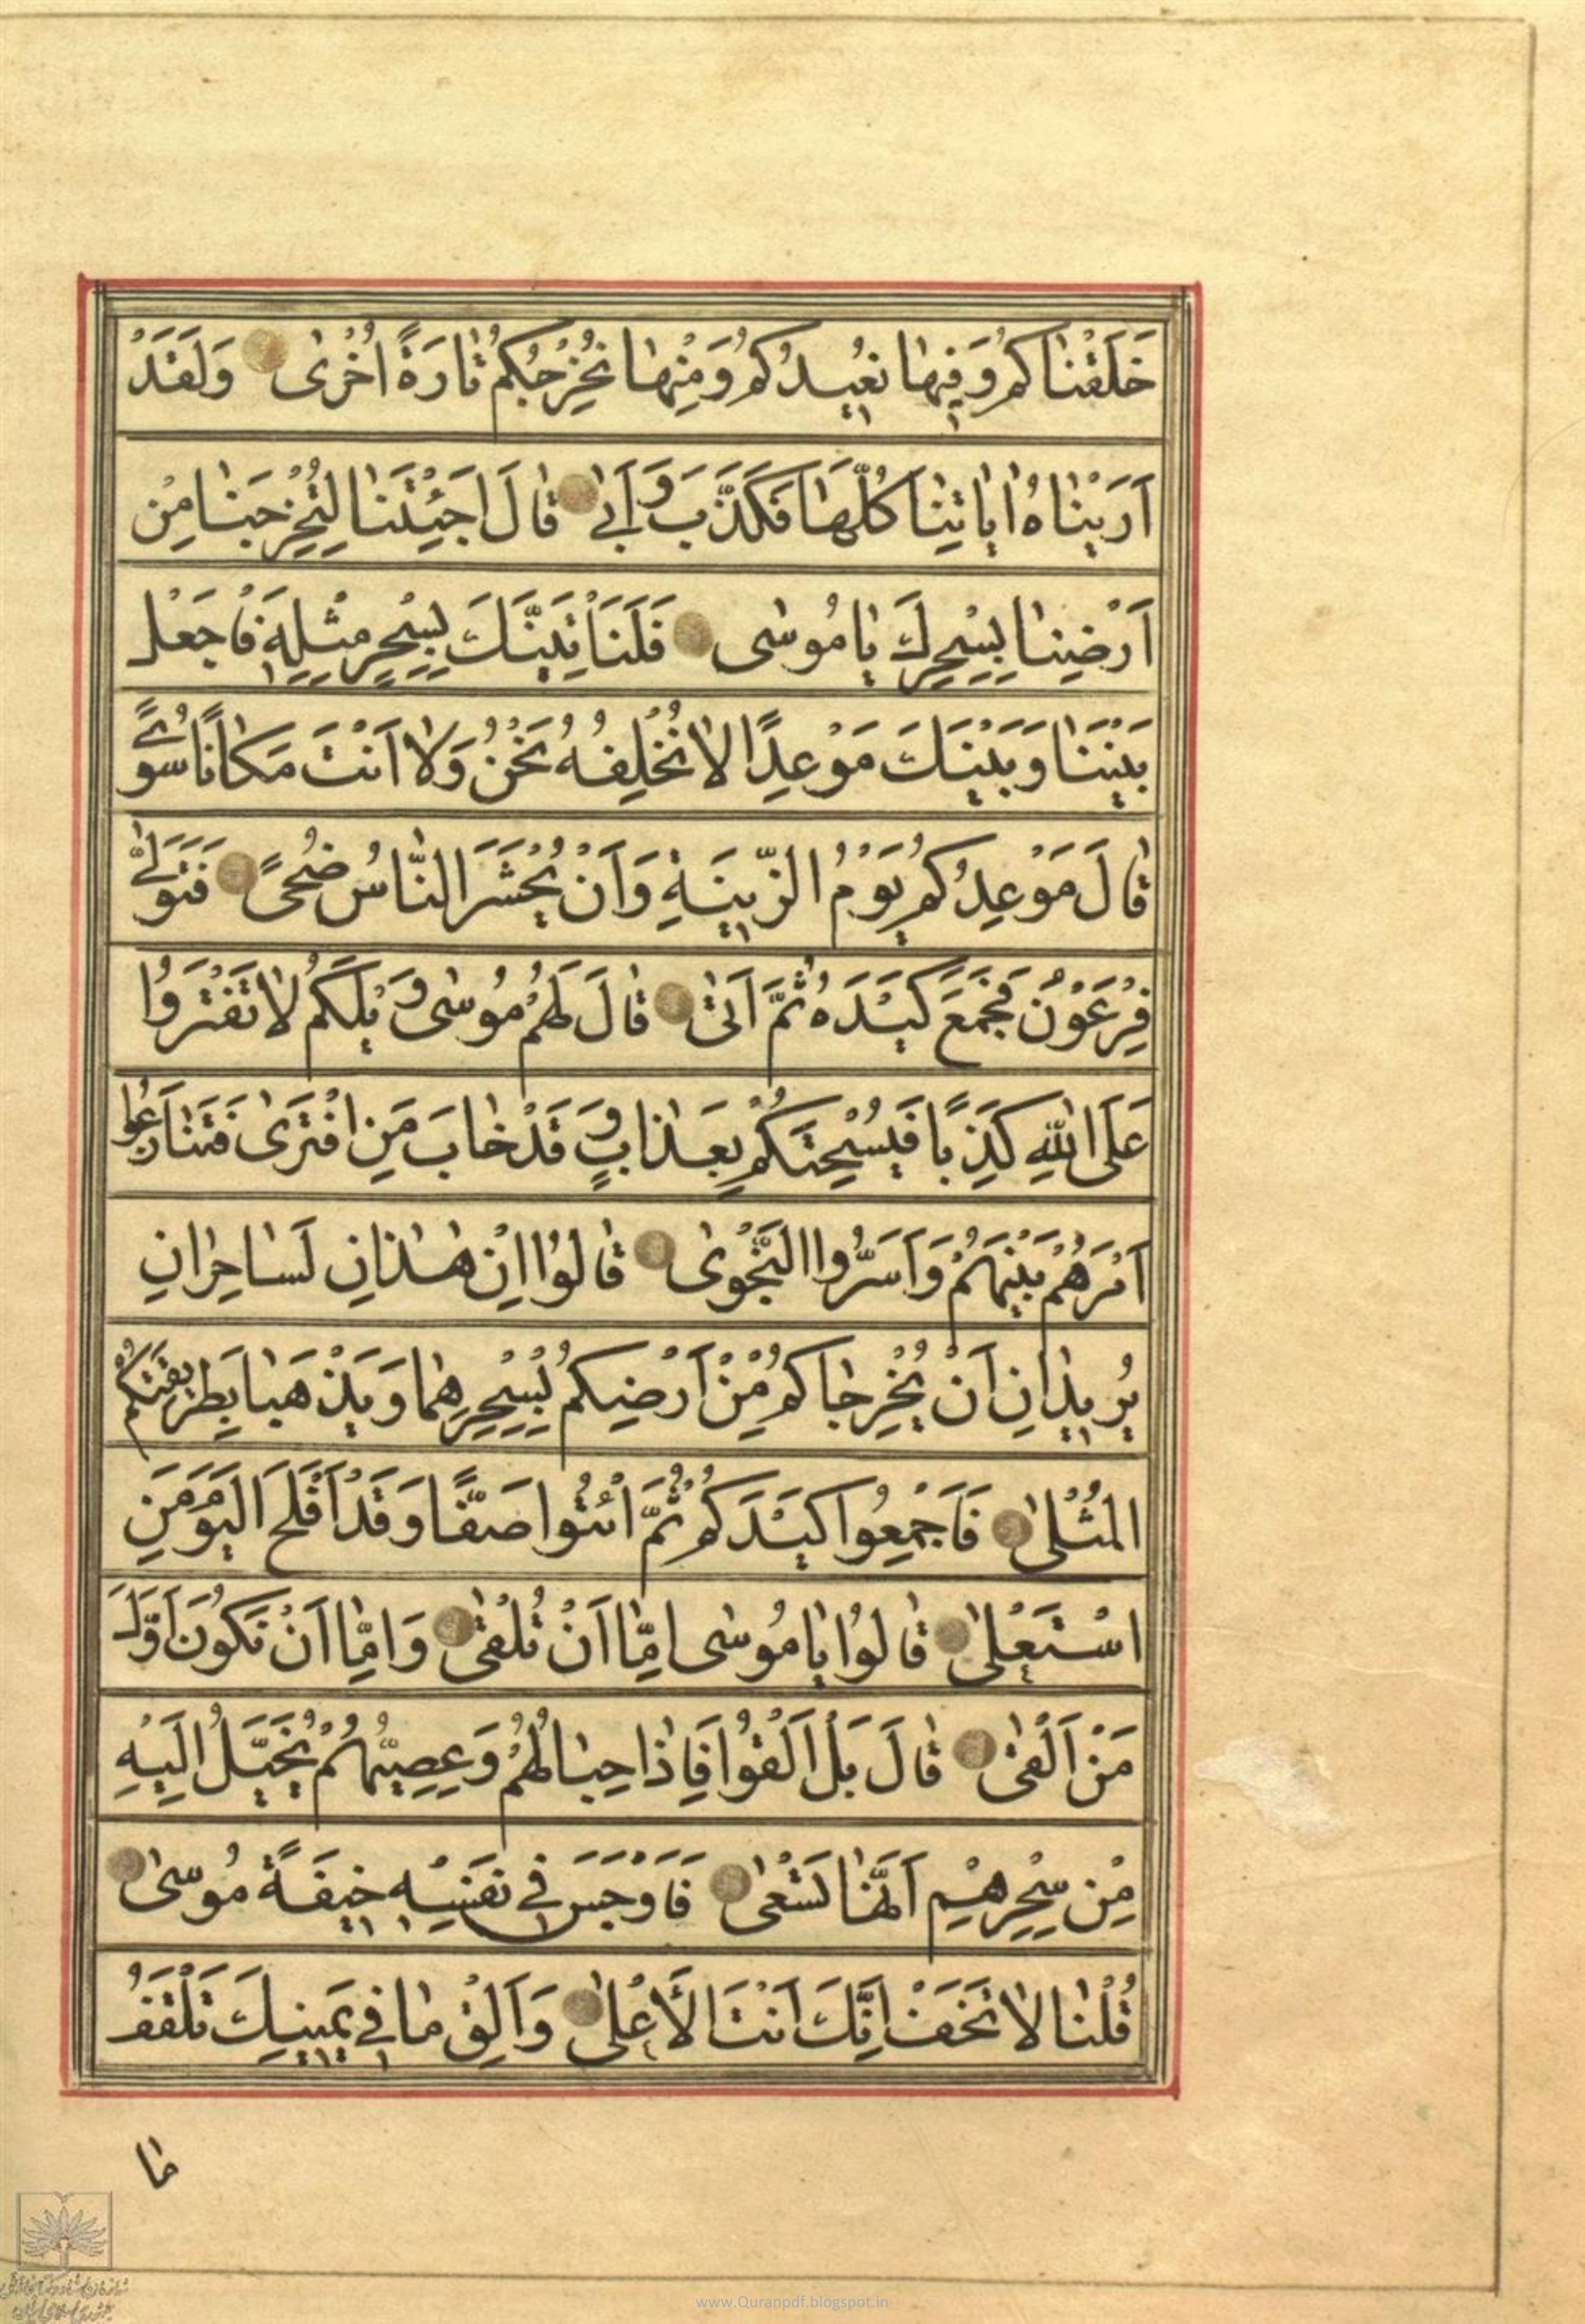 خَلَقْنٰاكُمْ وَفِيهٰا نُعِيدُكُمْ وَمِنْهٰا نُخْرِجُكُمْ تٰارَةً اُخْرٰى وَلَقَدْ
اَرَيْنٰاهُ اٰيٰاتِنٰا كُلَّهٰا فَكَذَّبَ وَاَبٰى قٰالَ اَجِئْتَنٰا لِتُخْرِجَنٰا مِنْ
اَرْضِنٰا بِسِحْرِكَ يٰا مُوسٰى فَلَنَأْتِيَنَّكَ بِسِحْرٍ مِثْلِهِ فَاجْعَلْ
بَيْنَنٰا وَبَيْنَكَ مَوْعِدًا لاٰ نُخْلِفُهُ نَحْنُ وَلاٰ اَنْتَ مَكٰانًا سُوًى
قٰالَ مَوْعِدُكُمْ يَوْمُ الزِّينَةِ وَاَنْ يُحْشَرَ النّٰاسُ ضُحًى فَتَوَلّٰى
فِرْعَوْنُ فَجَمَعَ كَيْدَهُ ثُمَّ اَتٰى قٰالَ لَهُمْ مُوسٰى وَيْلَكُمْ لاٰ تَفْتَرُوا
عَلَى اللّٰهِ كَذِبًا فَيُسْحِتَكُمْ بِعَذٰابٍ وَقَدْ خٰابَ مَنِ افْتَرٰى فَتَنٰازَعُوا
اَمْرَهُمْ بَيْنَهُمْ وَاَسَرُّوا النَّجْوٰى قٰالُوا اِنْ هٰذٰانِ لَسٰاحِرٰانِ
يُرِيدٰانِ اَنْ يُخْرِجٰاكُمْ مِنْ اَرْضِكُمْ بِسِحْرِهِمٰا وَيَذْهَبٰا بِطَرِيقَتِكُمُ
الْمُثْلٰى فَاَجْمِعُوا كَيْدَكُمْ ثُمَّ ائْتُوا صَفًّا وَقَدْ اَفْلَحَ الْيَوْمَ مَنِ
اسْتَعْلٰى قٰالُوا يٰا مُوسٰى اِمّٰا اَنْ تُلْقِىَ وَاِمّٰا اَنْ نَكُونَ اَوَّلَ
مَنْ اَلْقٰى قٰالَ بَلْ اَلْقُوا فَاِذٰا حِبٰالُهُمْ وَعِصِيُّهُمْ يُخَيَّلُ اِلَيْهِ
مِنْ سِحْرِهِمْ اَنَّهٰا تَسْعٰى فَاَوْجَسَ فِي نَفْسِهِ خِيفَةً مُوسٰى
قُلْنٰا لاٰ تَخَفْ اِنَّكَ اَنْتَ الْاَعْلٰى وَاَلْقِ مٰا فِي يَمِينِكَ تَلْقَفْ
مٰا
www.Quranpdf.blogspot.in